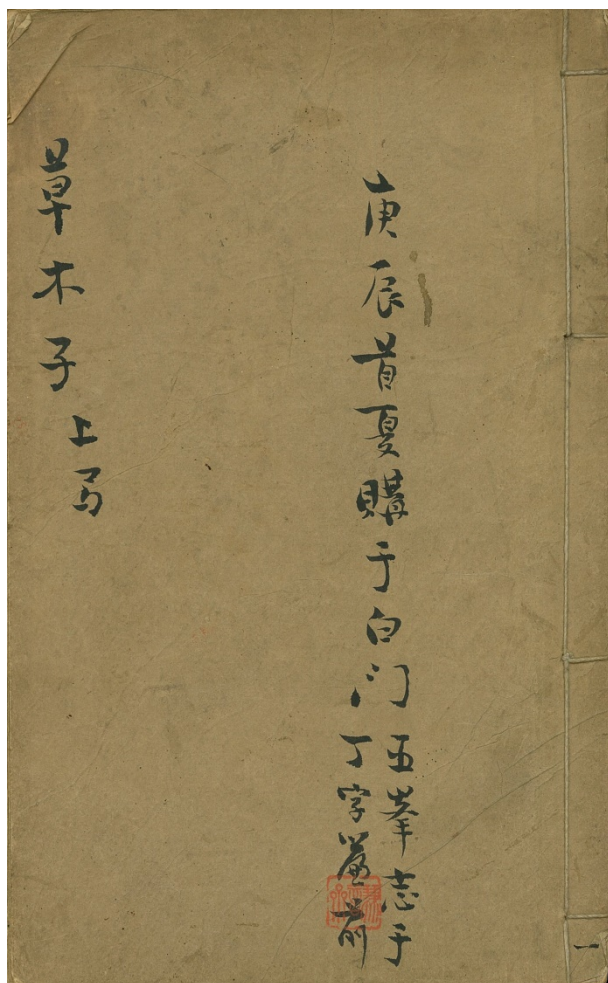 庚辰首夏購于白门
五峯志于
丁字簾前
草木子
上
一